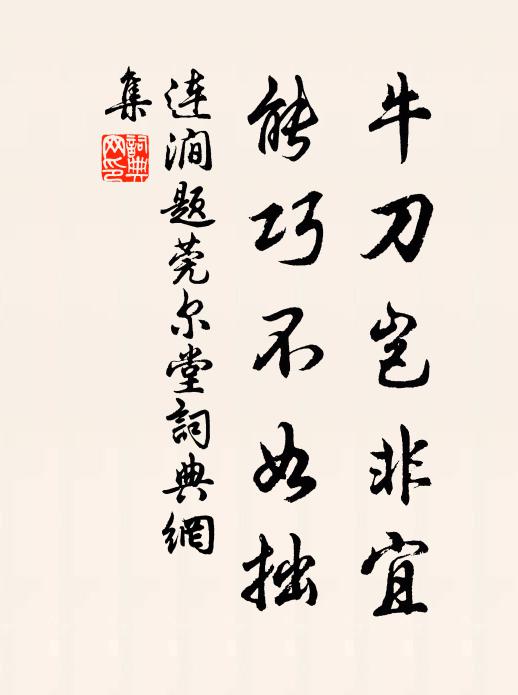 牛刀岂非宜
能巧不如拙
连涧题莞尔堂詞典網
集
詞典網印